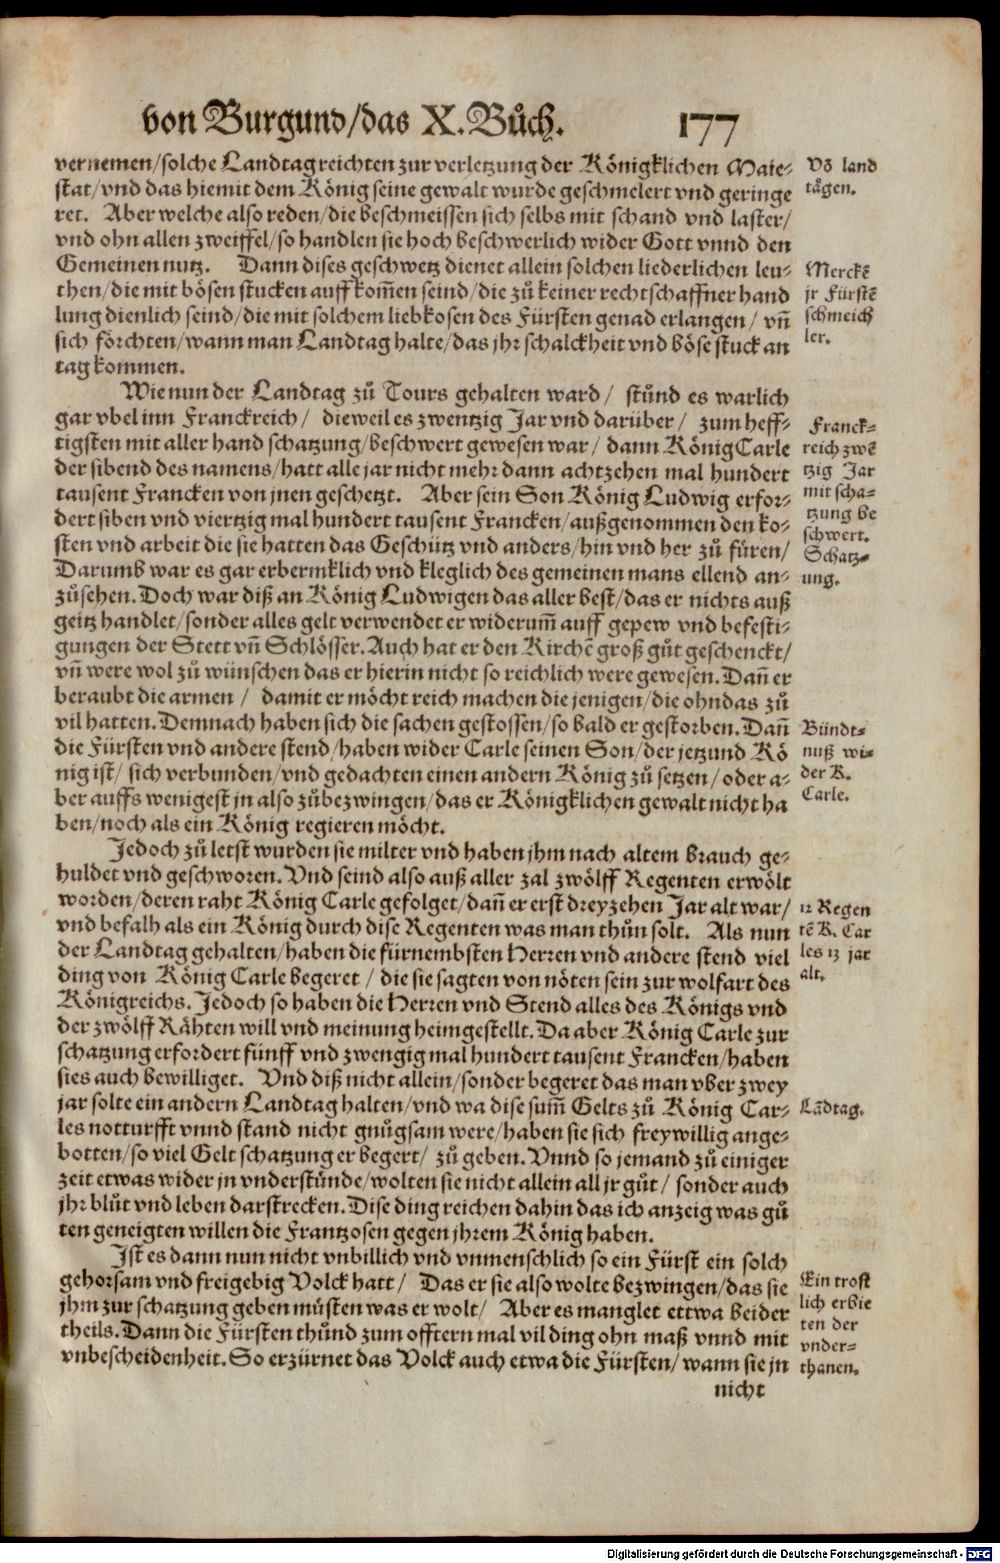 von Burgund/das X. Bůch. 177
vernemen/solche Landtag reichten zur verletzung der Königklichen Maie-
stat/vnd das hiemit dem König seine gewalt wurde geschmelert vnd geringe
ret. Aber welche also reden/die beschmeissen sich selbs mit schand vnd laster/
vnd ohn allen zweiffel/so handlen sie hoch beschwerlich wider Gott vnnd den
Gemeinen nutz. Dann dises geschwetz dienet allein solchen liederlichen leu-
then/die mit bösen stucken auff kom̄en seind/die zů keiner rechtschaffner hand
lung dienlich seind/die mit solchem liebkosen des Fürsten genad erlangen/ vn̄
sich förchten/wann man Landtag halte/das jhr schalckheit vnd böse stuck an
tag kommen.
Wie nun der Landtag zů Tours gehalten ward/ stůnd es warlich
gar vbel inn Franckreich/ dieweil es zwentzig Jar vnd darüber/ zum heff-
tigsten mit aller hand schatzung/beschwert gewesen war/ dann König Carle
der sibend des namens/hatt alle jar nicht mehr dann achtzehen mal hundert
tausent Francken von jnen geschetzt. Aber sein Son König Ludwig erfor-
dert siben vnd viertzig mal hundert tausent Francken/außgenommen den ko-
sten vnd arbeit die sie hatten das Geschütz vnd anders/hin vnd her zů füren/
Darumb war es gar erbermklich vnd kleglich des gemeinen mans ellend an-
zůsehen. Doch war diß an König Ludwigen das aller best/das er nichts auß
geitz handlet/sonder alles gelt verwendet er widerum̄ auff gepew vnd befesti-
gungen der Stett vn̄ Schlösser. Auch hat er den Kirchē groß gůt geschenckt/
vn̄ were wol zů wünschen das er hierin nicht so reichlich were gewesen. Dan̄ er
beraubt die armen/ damit er möcht reich machen die jenigen/die ohn das zů
vil hatten. Demnach haben sich die sachen gestossen/so bald er gestorben. Dan̄
die Fürsten vnd andere stend/haben wider Carle seinen Son/der jetzund Kö
nig ist/ sich verbunden/vnd gedachten einen andern König zů setzen/oder a-
ber auffs wenigest jn also zůbezwingen/das er Königklichen gewalt nicht ha
ben/noch als ein König regieren möcht.
Jedoch zů letst wurden sie milter vnd haben jhm nach altem Brauch ge-
huldet vnd geschworen. Vnd seind also auß aller zal zwölff Regenten erwölt
worden/deren raht König Carle gefolget/dan̄ er erst dreyzehen Jar alt war/
vnd befalh als ein König durch dise Regenten was man thůn solt. Als nun
der Landtag gehalten/haben die fürnembsten Herren vnd andere stend viel
ding von König Carle begeret/ die sie sagten von nöten sein zur wolfart des
Königreichs. Jedoch so haben die Herren vnd Stend alles des Königs vnd
der zwölff Rähten will vnd meinung heimgestellt. Da aber König Carle zur
schatzung erfordert fünff vnd zwengig mal hundert tausent Francken/haben
sies auch bewilliget. Vnd diß nicht allein/sonder begeret das man vber zwey
jar solte ein andern Landtag halten/vnd wa dise sum̄ Gelts zů König Car-
les notturfft vnnd stand nicht gnůgsam were/haben sie sich freywillig ange-
botten/so viel Gelt schatzung er begert/ zů geben. Vnnd so jemand zů einiger
zeit etwas wider jn vnderstünde/wolten sie nicht allein all jr gůt/ sonder auch
jhr blůt vnd leben darstrecken. Dise ding reichen dahin das ich anzeig was gů
ten geneigten willen die Frantzosen gegen jhrem König haben.
Ist es dann nun nicht vnbillich vnd vnmenschlich so ein Fürst ein solch
gehorsam vnd freigebig Volck hatt/ Das er sie also wolte bezwingen/das sie
jhm zur schatzung geben müsten was er wolt/ Aber es manglet ettwa beider
theils. Dann die Fürsten thůnd zum offtern mal vil ding ohn maß vnnd mit
vnbescheidenheit. So erzürnet das Volck auch etwa die Fürsten/wann sie jn
nicht
Vō land
tägen.
Merckē
jr Fürstē
schmeich
ler.
Franck-
reich zwē
tzig Jar
mit scha-
tzung be
schwert.
Schatz-
ung.
Bündt-
nuß wi-
der K.
Carle.
12 Regen
tē K. Car
les 13 jar
alt.
Lādtag.
Ein trost
lich erbie
ten der
vnder-
thanen.
Digitalisierung gefördert durch die Deutsche Forschungsgemeinschaft - DFG